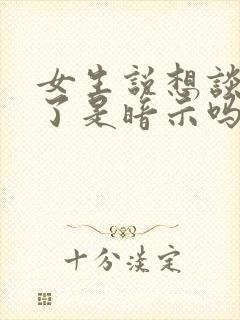 女生説想談
了是暗示吗
十分淡定